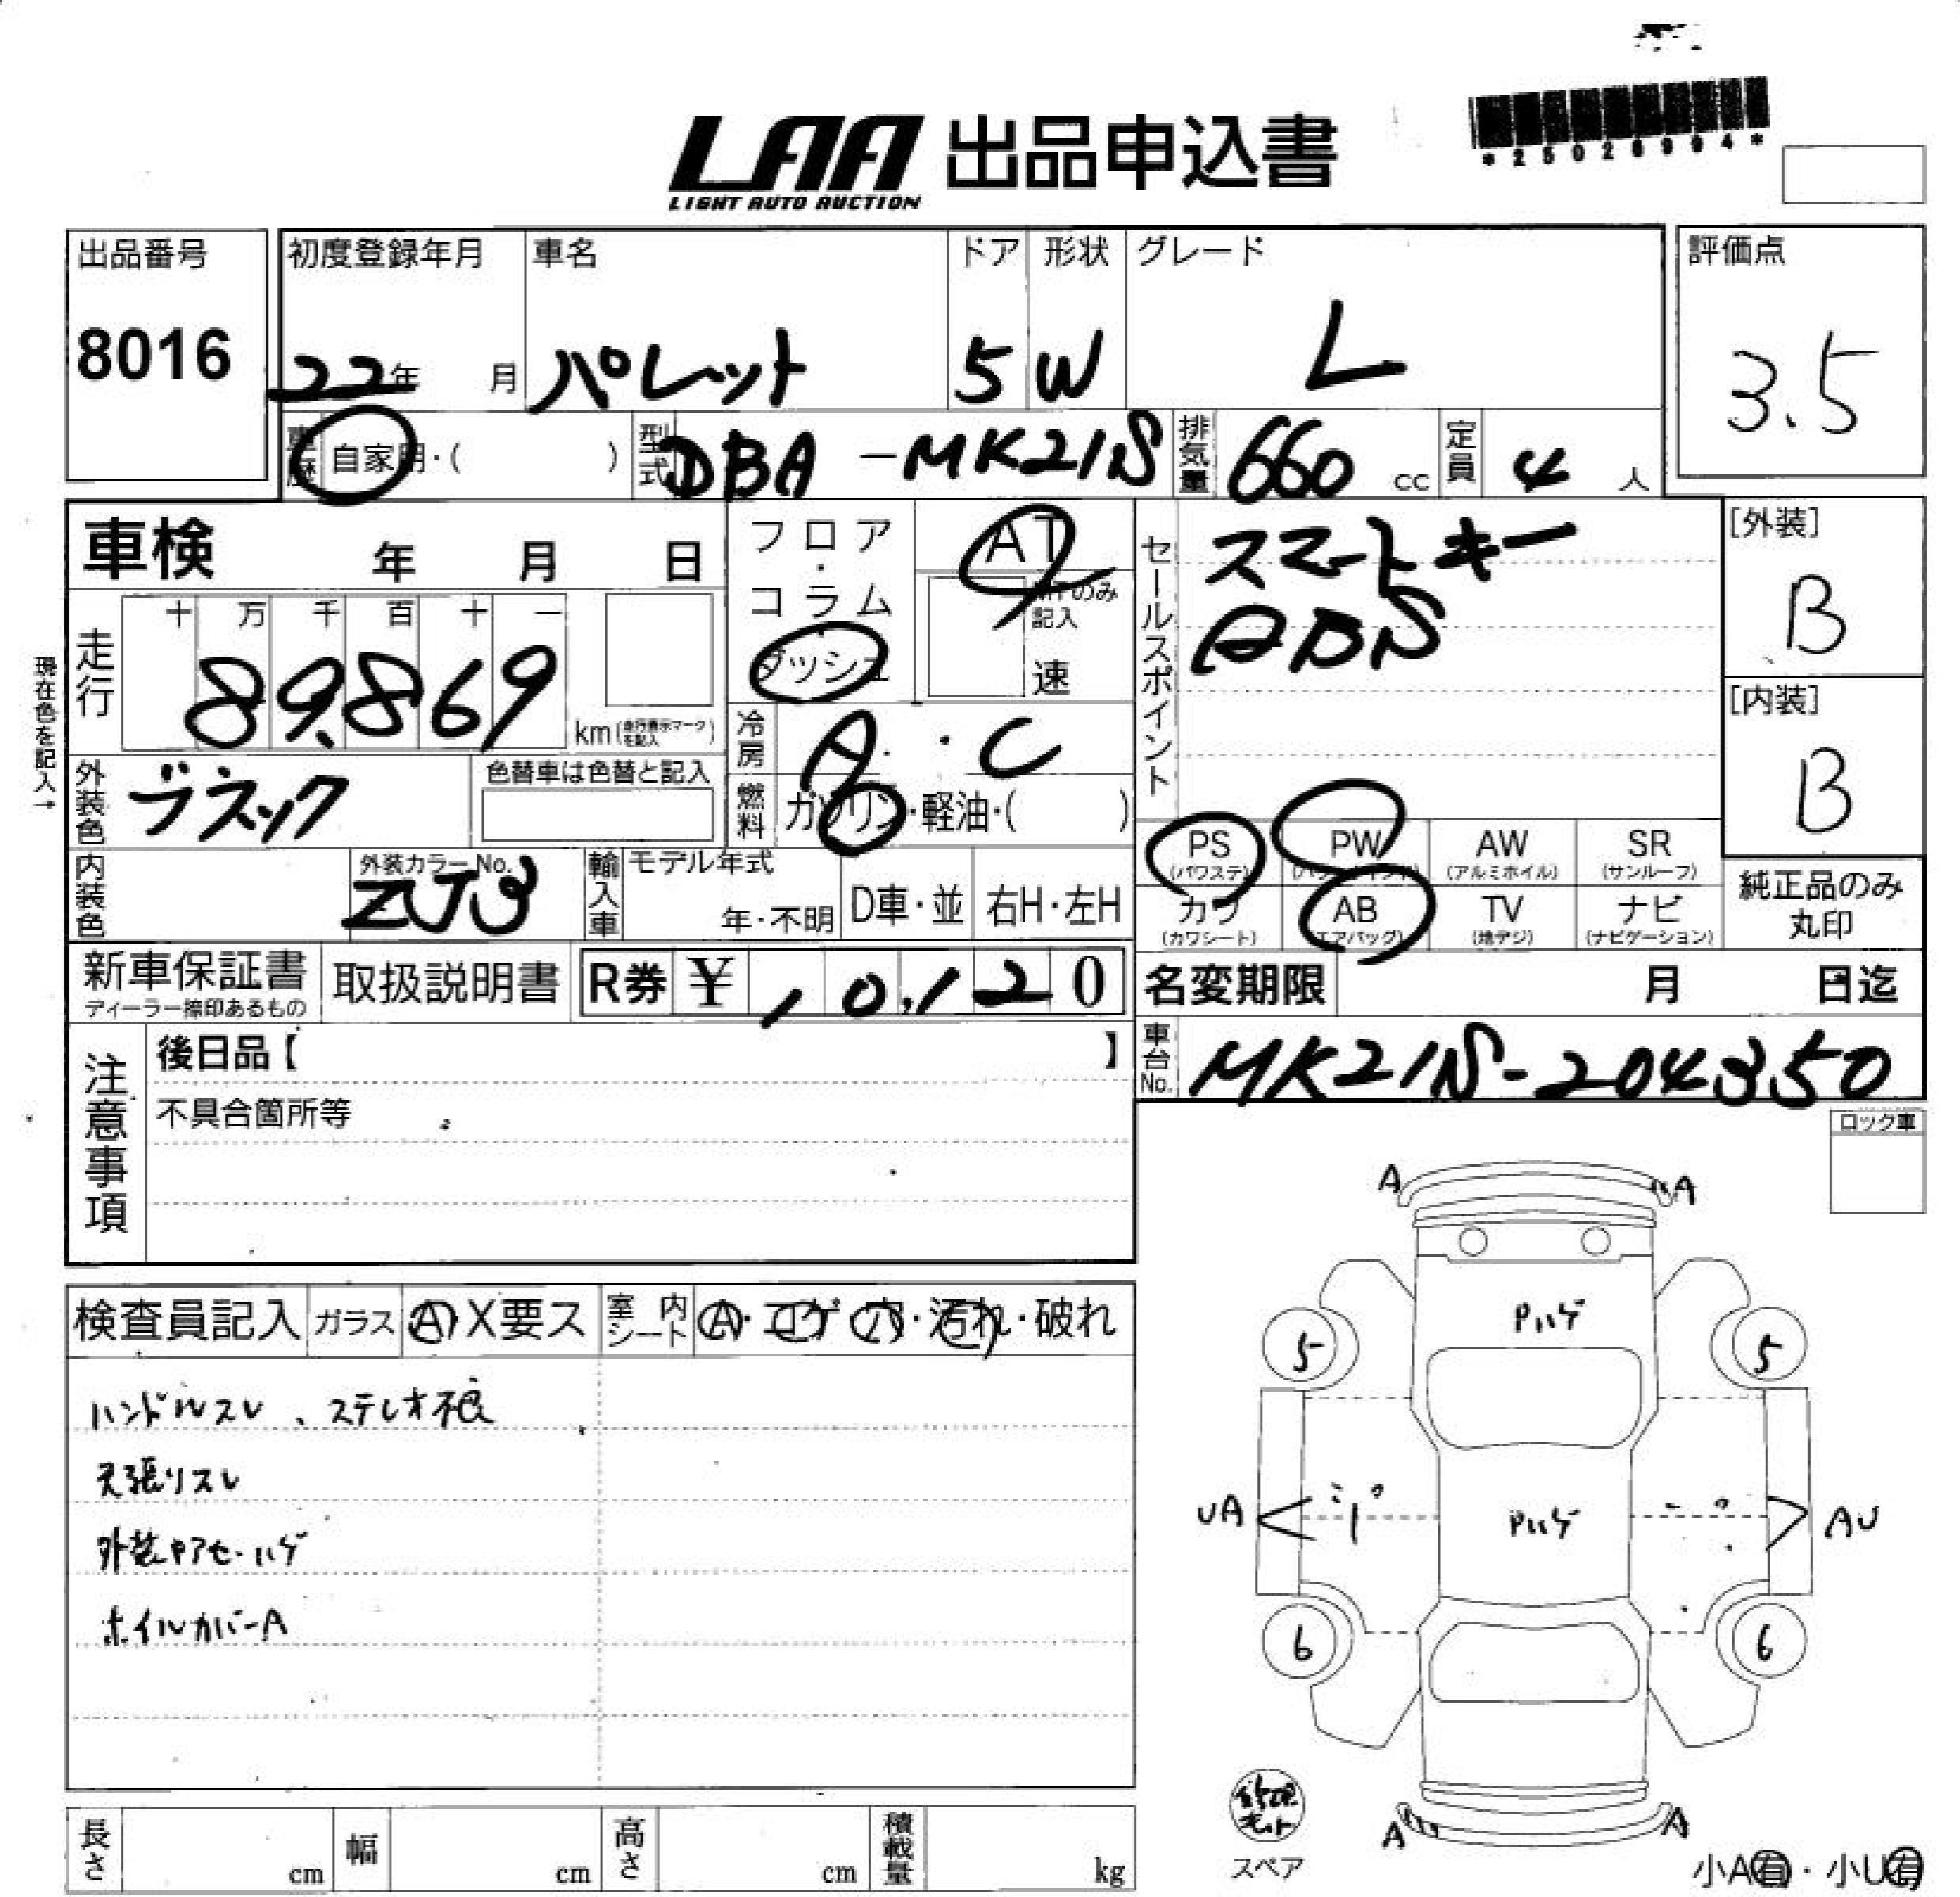 *25028994*
LAA 出品申込書
LIGHT AUTO AUCTION
出品番号 初度登録年月 車名 ドア 形状 グレード 評価点
8016 22年 月 パレット 5 W L 3.5
車歴 自家用・( ) 型式 DBA-MK21S 排気量 660 cc 定員 4 人
車検 年 月 日
フロア・コラム・ダッシュ
AT
MTのみ記入
速
セールスポイント
スマートキー
ABS
[外装]
B
[内装]
B
現在色を記入→
走行 十 万 千 百 十 一
89,869 km (走行表示マークを記入)
冷房 A・C
燃料 ガソリン・軽油・( )
外装色 ブラック 色替車は色替と記入
内装色 外装カラーNo. ZJ3 輸入車 モデル年式 年・不明 D車・並 右H・左H
PS (パワステ) PW AW (アルミホイル) SR (サンルーフ)
カワ (カワシート) AB (エアバッグ) TV (地デジ) ナビ (ナビゲーション)
純正品のみ丸印
新車保証書 ディーラー捺印あるもの 取扱説明書 R券 ¥ 10,120
名変期限 月 日迄
車台No. MK21S-204350
注意事項
後日品【 】
不具合箇所等
ロック車
検査員記入 ガラス A X要ス 室内シート A・コゲ・穴・汚れ・破れ
ハンドルスレ、ステレオ無
天張りスレ
外装ヤアセ・ハゲ
ホイルカバーA
A A
Pハゲ
5 5
UA Pハゲ AU
6 6
A A
修理キット
スペア
小A有・小U有
長さ cm 幅 cm 高さ cm 積載量 kg